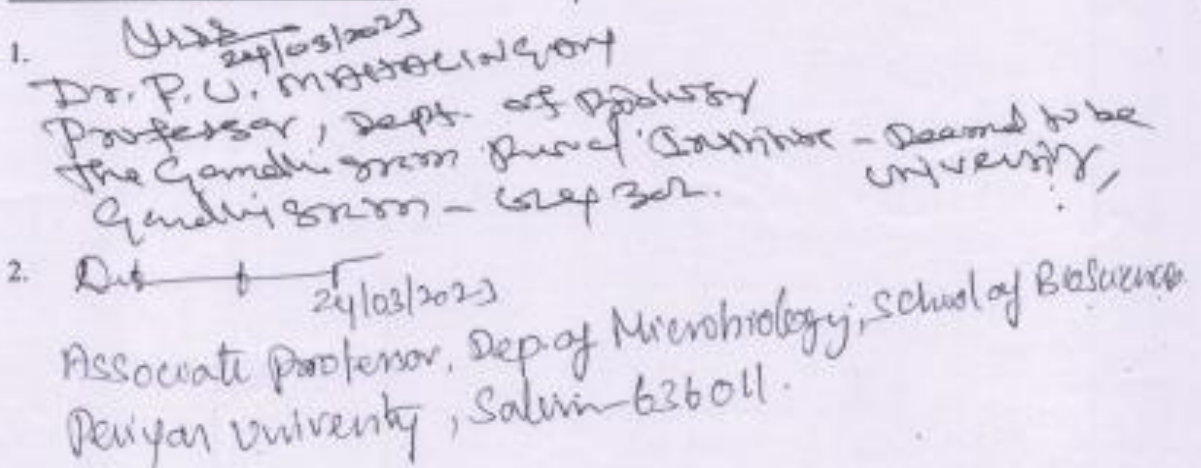 1.
24/03/2023
Dr. P. U. MAHALINGAM
Professor, Dept. of Biology
The Gandhigram Rural Institute - Deemed to be
University,
Gandhigram - 624 302.
2.
24/03/2023
Associate Professor, Dep. of Microbiology, School of Bioscience
Periyar University, Salem-636011.